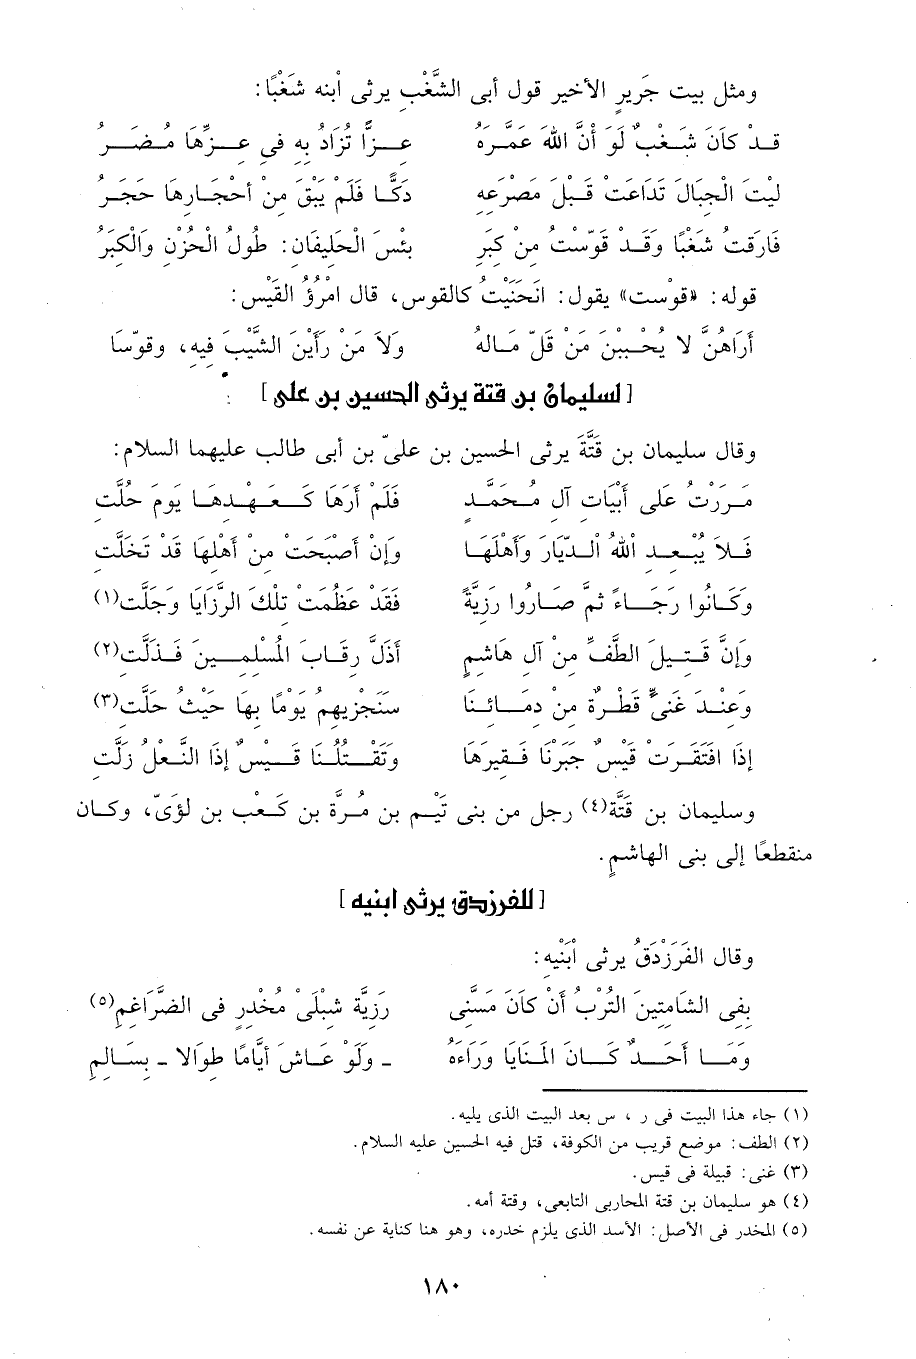 ومثل بيت جَريرٍ الأخير قول أبى الشَّغْبِ يرثى أبنه شَغْبًا:
قَدْ كَانَ شَغْبٌ لَوَ أنَّ اللهَ عَمَّرَهُ عِزًّا تُزَادُ بِه فى عِزِّهَا مُضَرُ
ليْتَ الْجِبَالَ تَدَاعَتْ قَبْلَ مَصْرَعِه دَكًّا فَلَمْ يَبْقَ مِنْ أحْجَارِهَا حَجَرُ
فَارَقْتُ شَغْبًا وَقَدْ قَوّسْتُ مِنْ كِبَرٍ بِئْسَ الْحَلِيفَانِ: طُولُ الْحُزْنِ وَالْكِبَرُ
قوله: «قوَّست» يقول: انْحَنَيْتُ كالقوس، قال امْرُؤُ القَيْس:
أرَاهُنَّ لا يُحْبِبْنَ مَنْ قَلّ مَالهُ وَلاَ مَنْ رَأَيْنَ الشَّيْبَ فِيهِ، وقوّسَا
[ لسليمان بن قتة يرثى الحسين بن على ]
وقال سليمان بن قَتَّةَ يرثى الحسين بن علىّ بن أبى طالب عليهما السلام:
مَرَرْتُ عَلَى أَبْيَاتِ آل مُحَمَّدٍ فَلَمْ أرَهَا كَعَهْدِهَا يَوْمَ حُلَّتِ
فَلاَ يُبْعِدِ اللهُ الدِّيَارَ وَأهْلَهَا وَإنْ أصْبَحَتْ مِنْ أهْلِهَا قَدْ تَخَلَّتِ
وَكَانُوا رَجَاءً ثمَّ صَارُوا رَزِيَّةً فَقَدْ عَظُمَتْ تِلْكَ الرَّزَايَا وَجَلَّتِ(١)
وَإنَّ قَتِيلَ الطَّفِّ مِنْ آل هَاشِمٍ أذَلَّ رِقَابَ المُسْلِمِينَ فَذَلَّتِ(٢)
وَعِنْدَ غَنِىٍّ قَطْرَةٌ مِنْ دِمَائِنَا سَنَجْزِيهِمُ يَوْمًا بِهَا حَيْثُ حَلَّتِ(٣)
إذَا افْتَقَرَتْ قَيْسٌ جَبَرْنَا فَقِيرَهَا وَتَقْتُلُنَا قَيْسٌ إذَا النَّعْلُ زَلَّتِ
وسليمان بن قَتَّةَ(٤) رجل من بنى تَيْمِ بن مُرَّةَ بن كَعْبِ بن لؤَىّ، وكان
منقطعًا إلى بنى الهاشمٍ.
[ للفرزدق يرثى ابنيه ]
وقال الفَرَزْدَقُ يرثى أبْنَيْهِ:
بِفِى الشامِتِينَ التُّرْبُ أنْ كَانَ مَسَّنِى رَزِيَّة شِبْلَىْ مُخْدِرٍ فى الضَّرَاغِمِ(٥)
وَمَا أحَدٌ كَانَ المَنَايَا وَرَاءَهُ ـ وَلَوْ عَاشَ أيَّامًا طوَالا ـ بِسَالِمِ
(١) جاء هذا البيت فى ر ، س بعد البيت الذى يليه.
(٢) الطف: موضع قريب من الكوفة، قتل فيه الحسين عليه السلام.
(٣) غنى: قبيلة فى قيس.
(٤) هو سليمان بن قتة المحاربى التابعى، وقتة أمه.
(٥) المخدر فى الأصل: الأسد الذى يلزم خدره، وهو هنا كناية عن نفسه.
١٨٠